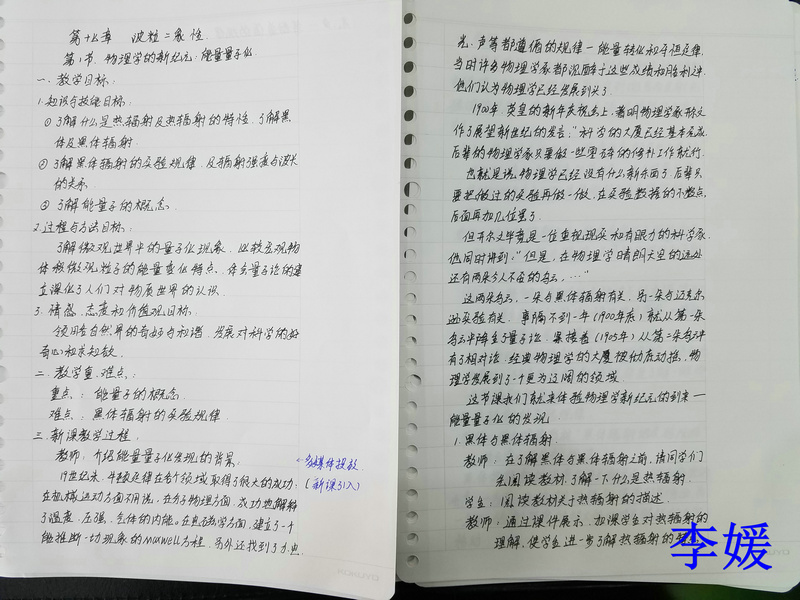 第十七章 波粒二象性
第1节 物理学的新纪元：能量量子化
一、教学目标：
1.知识与技能目标：
①了解什么是热辐射及热辐射的特性，了解黑
体及黑体辐射
②了解黑体辐射的实验规律，及辐射强度与波长
的关系
③了解能量子的概念
2.过程与方法目标：
了解微观世界中的量子化现象，比较宏观物
体和微观粒子的能量变化特点，体会量子论的建
立深化了人们对物质世界的认识
3.情感、态度和价值观目标：
领略自然界的奇妙与和谐，发展对科学的好
奇心和求知欲。
二、教学重、难点：
重点：能量子的概念
难点：黑体辐射的实验规律
三、新课教学过程
教师：介绍能量量子化发现的背景：
←多媒体投放
(新课引入)
19世纪末，牛顿定律在各个领域取得了很大的成功：
在机械运动方面不用说，在分子物理方面，成功地解释
了温度、压强、气体的内能。在电磁学方面，建立了一个
能推断一切现象的Maxwell方程。另外还找到了力、电、
光、声等都遵循的规律—能量转化和守恒定律。
当时许多物理学家都沉醉于这些成绩和胜利之中。
他们认为物理学已经发展到头了。
1900年，英皇的新年庆祝会上，著明物理学家
作了展望新世纪的发言：“科学的大厦已经基本完成，
后辈的物理学家只要做一些零碎的修补工作就行。
也就是说，物理学已经没有什么新东西了，后辈只
要把做过的实验再做一做，在实验数据的小数点
后面再加几位罢了。
但开尔文毕竟是一位重视现实和有眼力的科学家，
他同时讲到：“但是，在物理学晴朗天空的远处
还有两朵令人不安的乌云，…”
这两朵乌云，一朵与黑体辐射有关，另一朵与迈克尔
逊实验有关。事隔不到一年(1900年底)就从第一朵
乌云中降生了量子论，紧接着(1905年)从第二朵乌云中
有了相对论。经典物理学的大厦被彻底动摇，物
理学发展到了一个更为辽阔的领域。
这节课我们就来体验物理学新纪元的到来—
能量量子化的发现
1.黑体与黑体辐射
教师：在了解黑体与黑体辐射之前，请同学们
先阅读教材，了解一下什么是热辐射。
学生：阅读教材关于热辐射的描述。
教师：通过课件展示，加深学生对热辐射的
理解，使学生进一步了解热辐射的
李媛